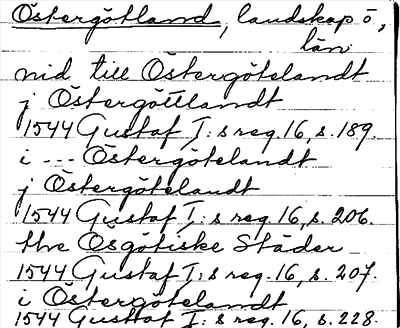 Östergötland, landskap o,
län
nid till Östergötelandt
j Östergöttlandt
1544 Gustaf I:s reg. 16, s. 189.
i --- Östergötelandt
j Östergötelandt
1544 Gustaf I:s reg. 16, s. 206.
the Osgötiske Städer
1544 Gustaf I:s reg. 16, s. 207.
i Östergötelandt
1544 Gustaf I:s reg. 16, s. 228.